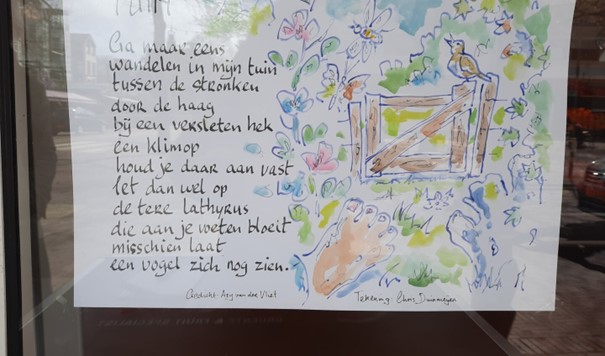 Ga maar eens
wandelen in mijn tuin
tussen de stronken
door de haag
bij een versleten hek
een klimop
houd je daar aan vast
let dan wel op
de tere lathyrus
die aan je voeten bloeit
misschien laat
een vogel zich nog zien.
Gedicht: Agy van der Vliet
Tekening: